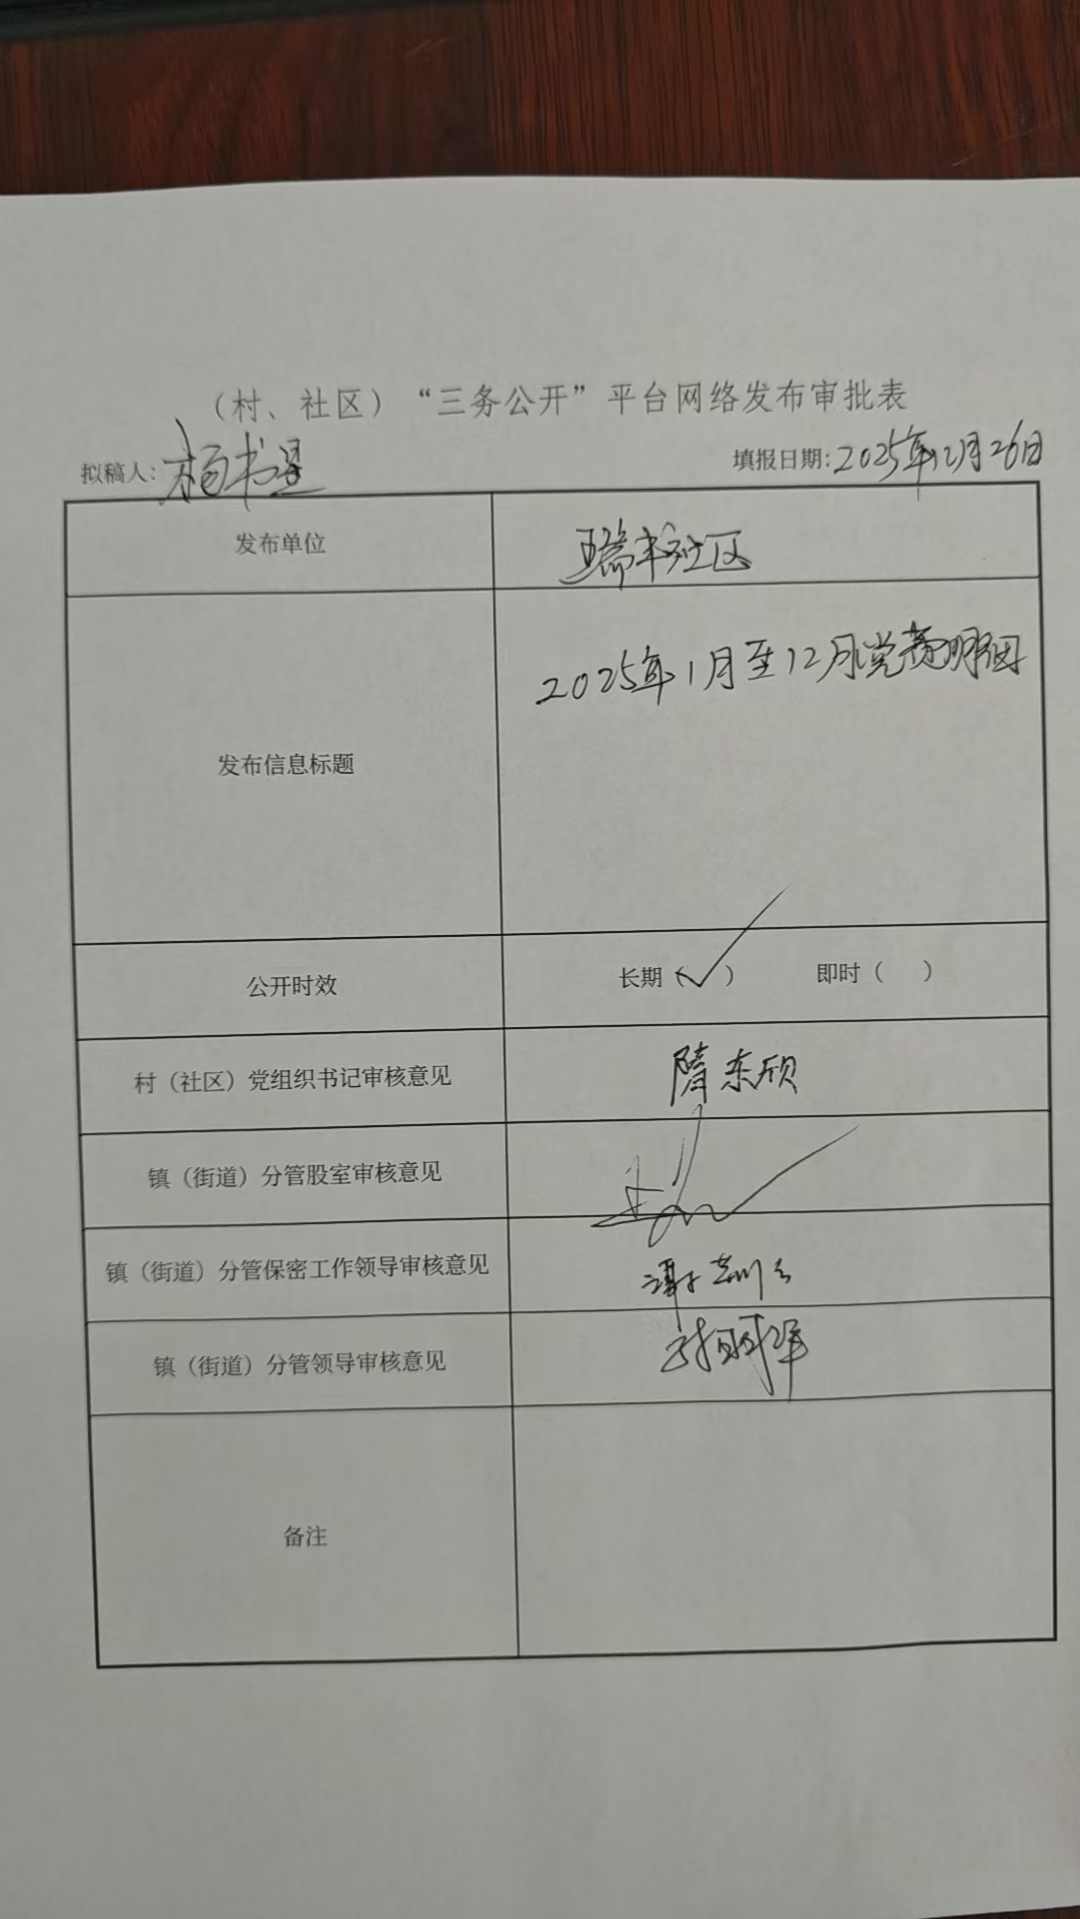 （村、社区）“三务公开”平台网络发布审批表
拟稿人：杨书星 填报日期：2025年12月26日
发布单位 瑞丰社区
发布信息标题 2025年1月至12月党费明细
公开时效 长期（✓） 即时（ ）
村（社区）党组织书记审核意见 隋东欣
镇（街道）分管股室审核意见
镇（街道）分管保密工作领导审核意见
镇（街道）分管领导审核意见
备注